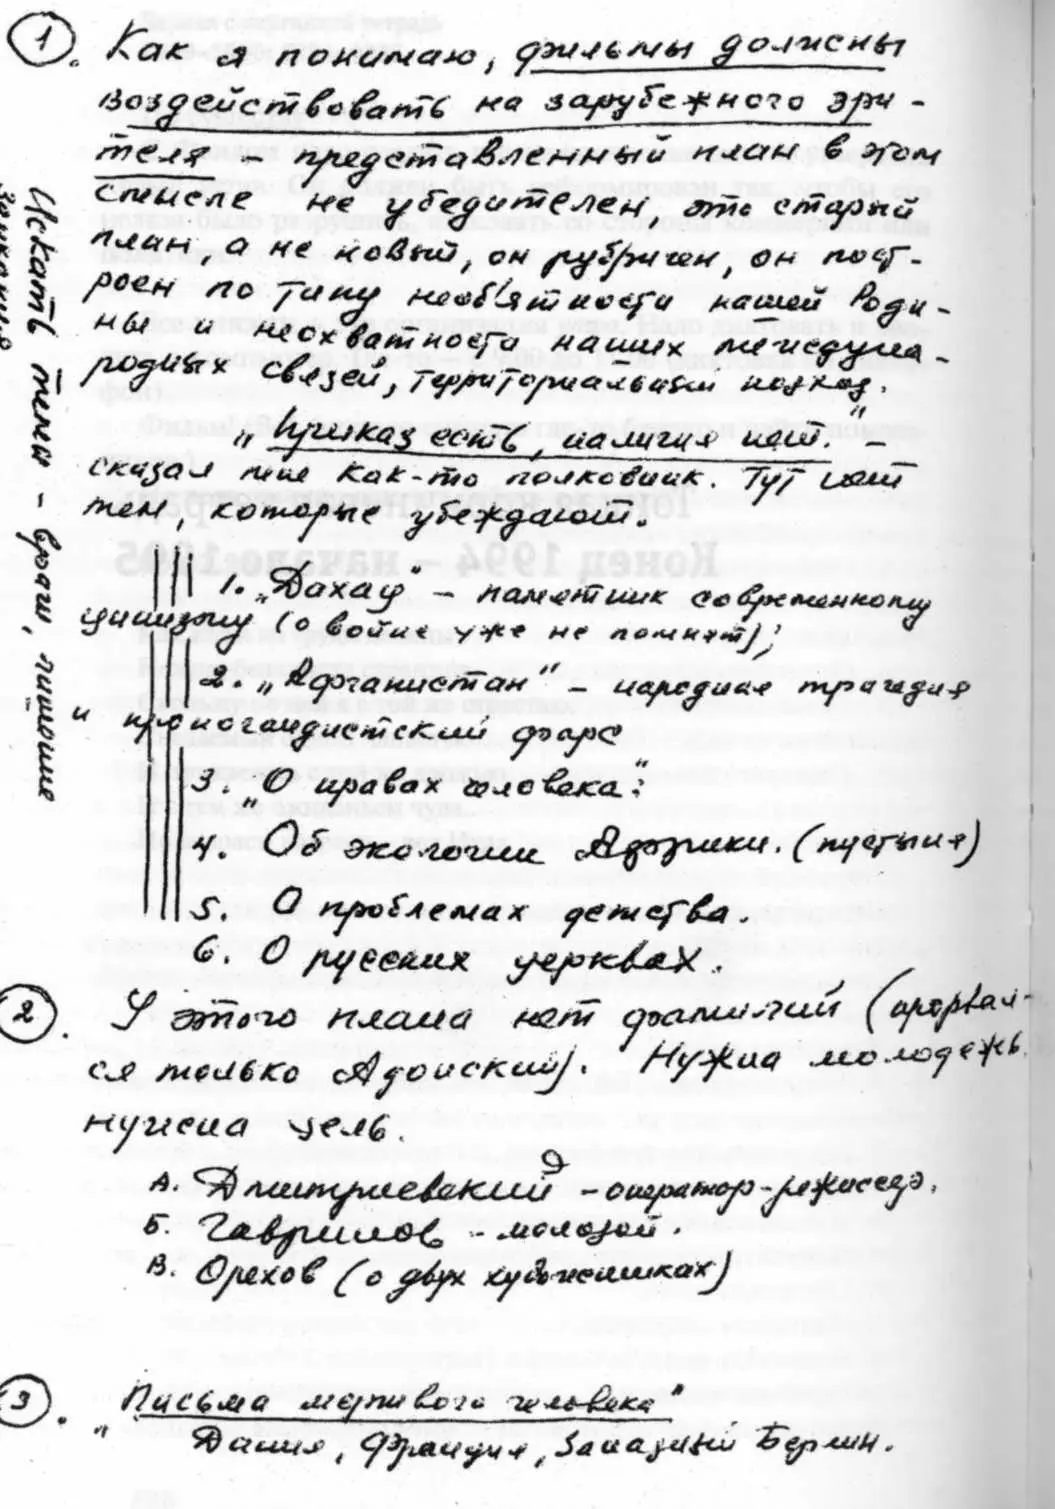 1. Как я понимаю, фильмы должны
воздействовать на зарубежного зри-
теля – представленный план в этом
смысле не убедителен это старый
план, а не новый, он рубричен, он пост-
роен по типу необъятности нашей Роди-
ны и неохватности наших междуна-
родных связей, территориальный подход.
„Приказ есть, наличия нет," –
сказал мне как-то полковник. Тут нет
тем, которые убеждают.
1. „Дахау" – памятник современному
цинизму (о войне уже не помнят);
2. „Афганистан" – народная трагедия
и пропогандистский фарс
3. „О правах человека".
4. Об экологии Африки. (пустыня)
5. О проблемах детства.
6. О русских церквах.
Искать темы – враги,
2. У этого плана нет фамилий (прорвал-
ся только Адоиский). Нужна молодежь.
нужна цель.
А. Дмитриевский – оператор-режиссер.
Б. Гаврилов – молодой.
В. Орехов (о двух художниках)
3. „Письма мертвого человека"
Дания, Франция, Западный Берлин.
Конец 1994 – начало 1995